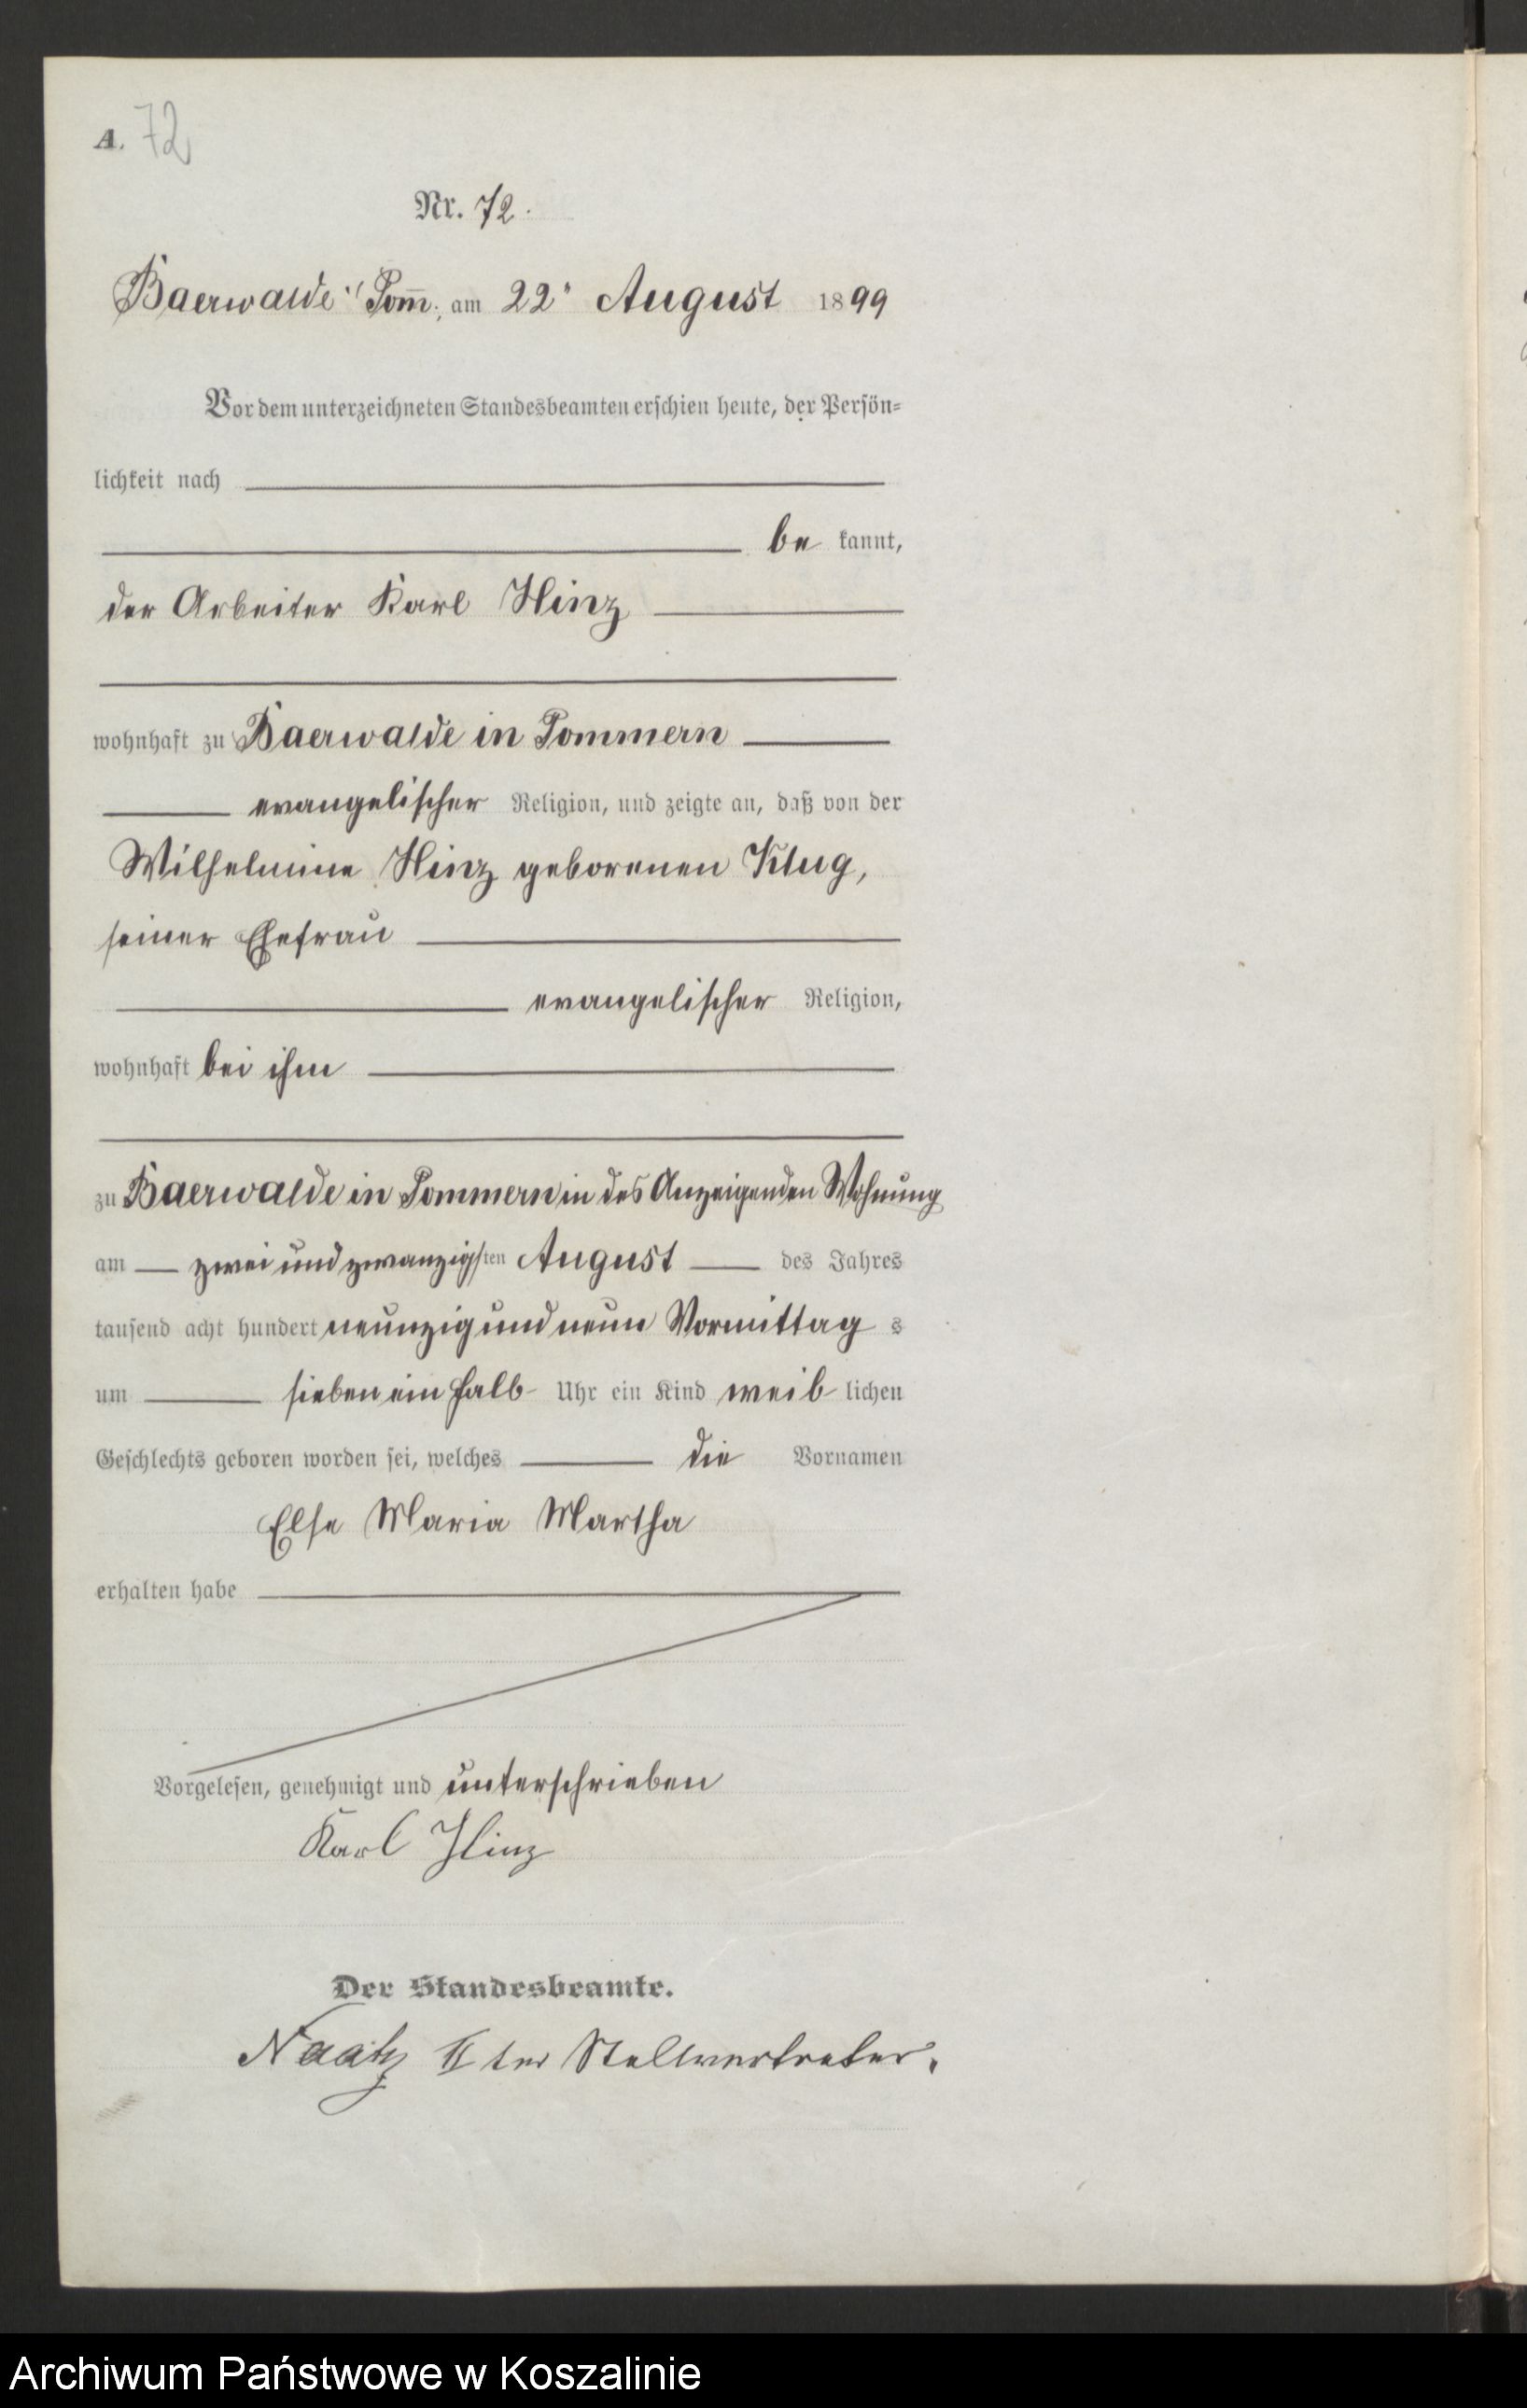 A. 72
Nr. 72.
Baerwalde i/Pom̅., am 22. August 1899
Vor dem unterzeichneten Standesbeamten erschien heute, der Persön=
lichkeit nach
be kannt,
der Arbeiter Karl Hinz
wohnhaft zu Baerwalde in Pommern
evangelischer Religion, und zeigte an, daß von der
Wilhelmine Hinz geborenen Klug,
seiner Ehefrau
evangelischer Religion,
wohnhaft bei ihm
zu Baerwalde in Pommern in des Anzeigenden Wohnung
am zwei und zwanzigsten August des Jahres
tausend acht hundert neunzig und neun Vormittag s
um sieben ein halb Uhr ein Kind weib lichen
Geschlechts geboren worden sei, welches die Vornamen
Else Maria Martha
erhalten habe
Vorgelesen, genehmigt und unterschrieben
Karl Hinz
Der Standesbeamte.
Naatz II ter Stellvertreter.
Archiwum Państwowe w Koszalinie